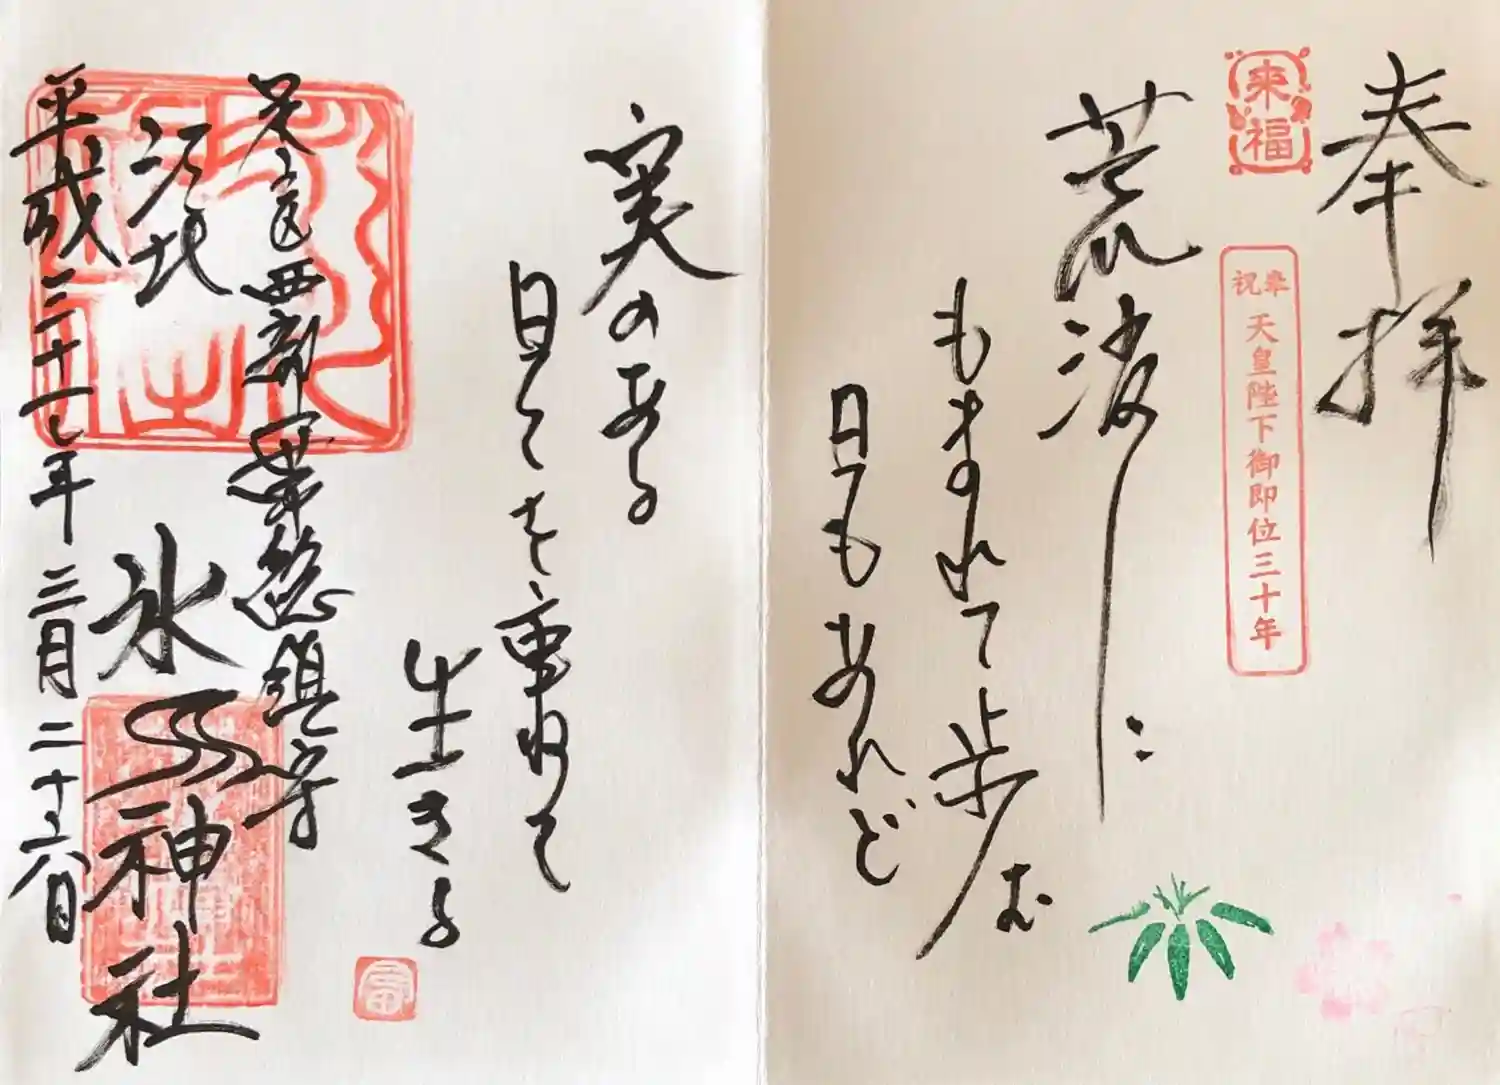 奉拝
来福
奉祝
天皇陛下御即位三十年
荒波に
もまれて歩む
日もあれど
実のある
日々を重ねて
生きる
足立区西部一粟惣鎮守
江北
氷川神社
平成三十一年三月二十六日